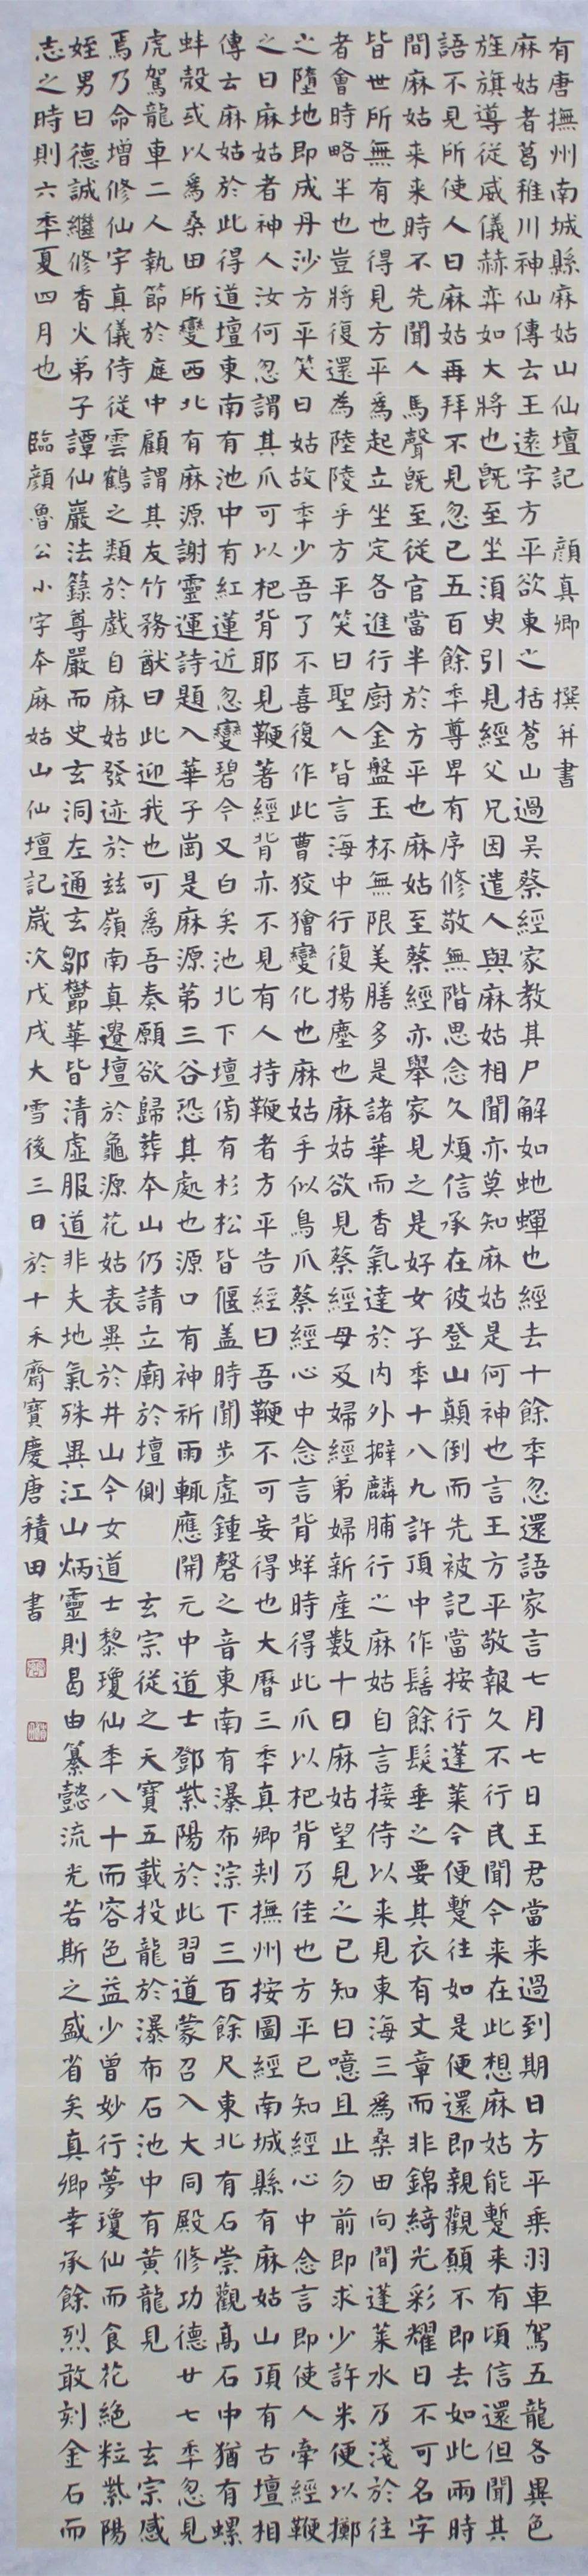 有唐撫州南城縣麻姑山仙壇記　顏真卿　撰并書
麻姑者葛稚川神仙傳云王遠字方平欲東之括蒼山過吳蔡經家教其尸解如虵蟬也經去十餘年忽還語家言七月七日王君當来過到期日方平乘羽車駕五龍各異色
旌旗導従威儀赫弈如大將也既至坐湏臾引見經父兄因遣人與麻姑相聞亦莫知麻姑是何神也言王方平敬報久不行民聞今来在此想麻姑能蹔来有頃信還但聞其
語不見所使人曰麻姑再拜不見忽已五百餘年尊卑有序修敬無階思念久煩信承在彼登山顛倒而先被記當按行蓬萊今便蹔往如是便還即親觀願不即去如此兩時
間麻姑来来時不先聞人馬聲既至従官當半於方平也麻姑至蔡經亦舉家見之是好女子年十八九許頂中作髻餘髮垂之要其衣有文章而非錦綺光彩耀日不可名字
皆世所無有也得見方平為起立坐定各進行廚金盤玉杯無限美膳多是諸華而香氣達於內外擗麟脯行之麻姑自言接侍以来見東海三為桑田向間蓬萊水乃淺於往
者會時略半也豈將復還為陸陵乎方平笑曰聖人皆言海中行復揚塵也麻姑欲見蔡經母及婦經弟婦新産數十日麻姑望見之已知曰噫且止勿前即求少許米便以擲
之墮地即成丹沙方平笑曰姑故年少吾了不喜復作此曹狡獪變化也麻姑手似鳥爪蔡經心中念言背蛘時得此爪以杷背乃佳也方平已知經心中念言即使人牽經鞭
之曰麻姑者神人汝何忽謂其爪可以杷背耶見鞭著經背亦不見有人持鞭者方平告經曰吾鞭不可妄得也大曆三年真卿刾撫州按圖經南城縣有麻姑山頂有古壇相
傳云麻姑於此得道壇東南有池中有紅蓮近忽變碧今又白矣池北下壇傍有杉松皆偃盖時聞步虛鍾磬之音東南有瀑布淙下三百餘尺東北有石崇觀高石中猶有螺
蚌殼或以為桑田所變西北有麻源謝靈運詩題入華子崗是麻源第三谷恐其處也源口有神祈雨輒應開元中道士鄧紫陽於此習道蒙召入大同殿修功德廿七年忽見
虎駕龍車二人執節於庭中顧謂其友竹務猷曰此迎我也可為吾奏願欲歸葬本山仍請立廟於壇側　玄宗従之天寶五載投龍於瀑布石池中有黃龍見　玄宗感
焉乃命增修仙宇真儀侍従雲鶴之類於戲自麻姑發迹於兹嶺南真遺壇於龜源花姑表異於井山今女道士黎瓊仙年八十而容色益少曾妙行夢瓊仙而食花絕粒紫陽
姪男曰德誠繼修香火弟子譚仙巖法籙尊嚴而史玄洞左通玄鄒鬱華皆清虛服道非夫地氣殊異江山炳靈則曷由纂懿流光若斯之盛省矣真卿幸承餘烈敢刻金石而
志之時則六年夏四月也　臨顏魯公小字本麻姑山仙壇記歲次戊戌大雪後三日於十禾齋寶慶唐積田書